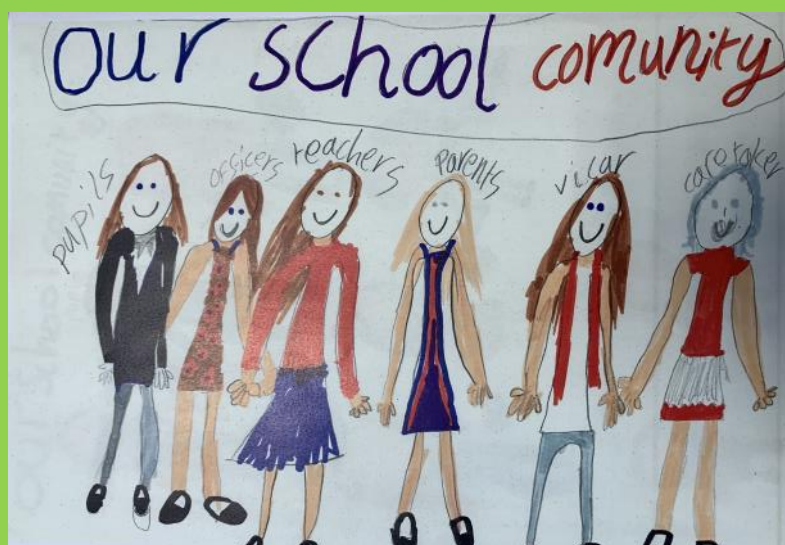 our school comunity
pupils officers teachers parents vicar caretaker